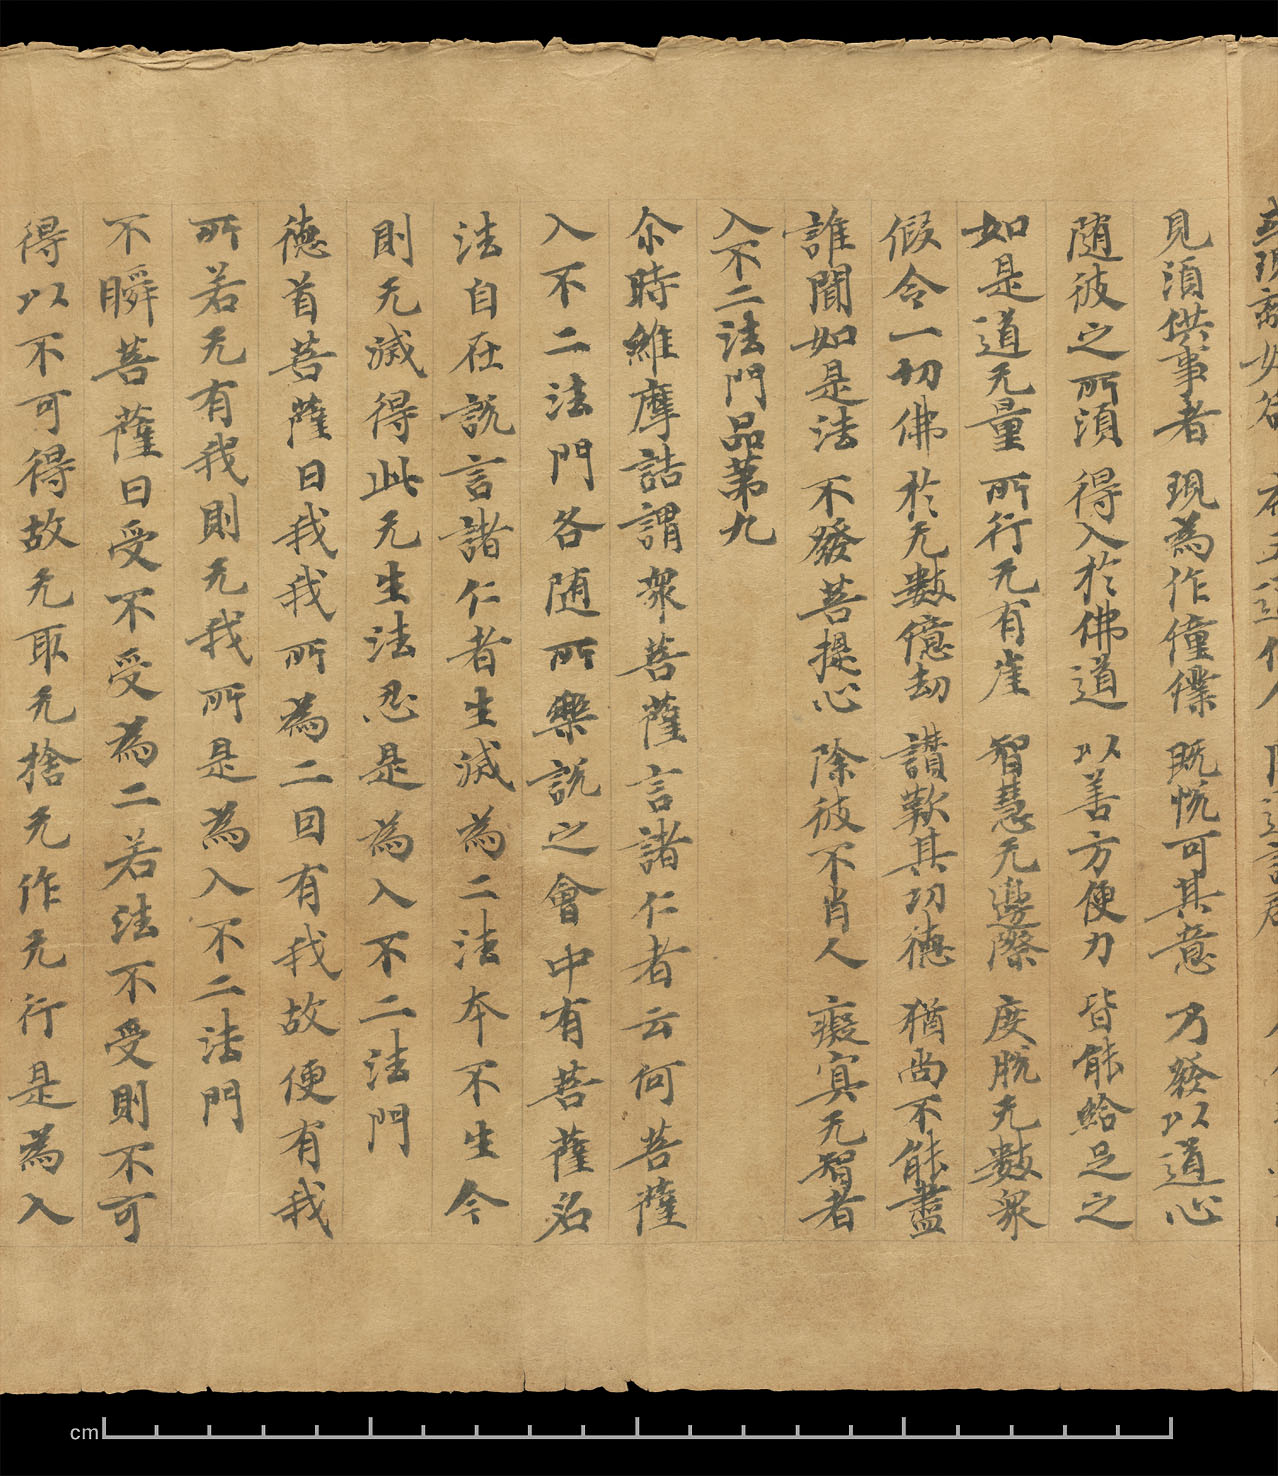 見湏供事者 現為作僮僕 既恱可其意 乃發以道心
随彼之所湏 得入於佛道 以善方便力 皆能給足之
如是道无量 所行无有崖 智慧无邊際 度脫无數衆
假令一切佛 於无數億劫 讃歎其功德 猶尚不能盡
誰聞如是法 不發菩提心 除彼不肖人 癡冥无智者
入不二法門品苐九
尒時維摩詰謂衆菩薩言諸仁者云何菩薩
入不二法門各随所樂說之會中有菩薩名
法自在說言諸仁者生滅為二法本不生今
則无滅得此无生法忍是為入不二法門
德首菩薩曰我我所為二因有我故便有我
所若无有我則无我所是為入不二法門
不瞬菩薩曰受不受為二若法不受則不可
得以不可得故无取无捨无作无行是為入
cm